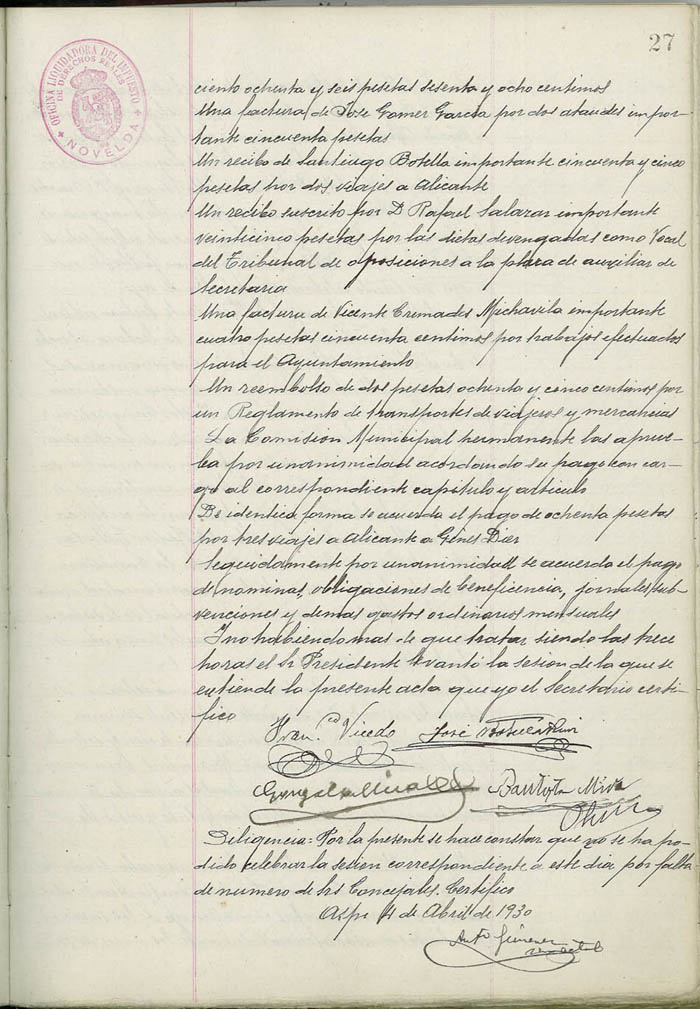 27
OFICINA LIQUIDADORA DEL IMPUESTO
DE DERECHOS REALES
NOVELDA
ciento ochenta y seis pesetas sesenta y ocho centimos
Una factura de Jose Gomer Garcia por dos ataudes impor-
tante cincuenta pesetas
Un recibo de Santiago Botella importante cincuenta y cinco
pesetas por dos viajes a Alicante
Un recibo suscrito por D Rafael Salazar importante
veinticinco pesetas por las dietas devengadas como Vocal
del Tribunal de oposiciones a la plaza de auxiliar de
Secretaria
Una factura de Vicente Cremades Michavila importante
cuatro pesetas cincuenta centimos por trabajos efectuados
para el Ayuntamiento
Un reembolso de dos pesetas ochenta y cinco centimos por
un Reglamento de transportes de viajeros y mercancias
La Comision Municipal permanente las aprue-
ba por unanimidad acordando su pago con car-
go al correspondiente capitulo y articulo
De identica forma se acuerda el pago de ochenta pesetas
por tres viajes a Alicante a Gines Dier
Seguidamente por unanimidad se acuerda el pago
de nominas, obligaciones de beneficencia, jornales, sub-
venciones y demas gastos ordinarios mensuales
I no habiendo mas de que tratar siendo las trece
horas el Sr Presidente levantó la sesion de la que se
extiende la presente acta que yo el Secretario certi-
fico
Fran.co Vicedo José
Gonzalo Bautista Mira
Diligencia: Por la presente se hace constar que no se ha po-
dido celebrar la sesion correspondiente a este dia por falta
de numero de Srs Concejales. Certifico
Aspe 4 de Abril de 1930
Anto Gimenez